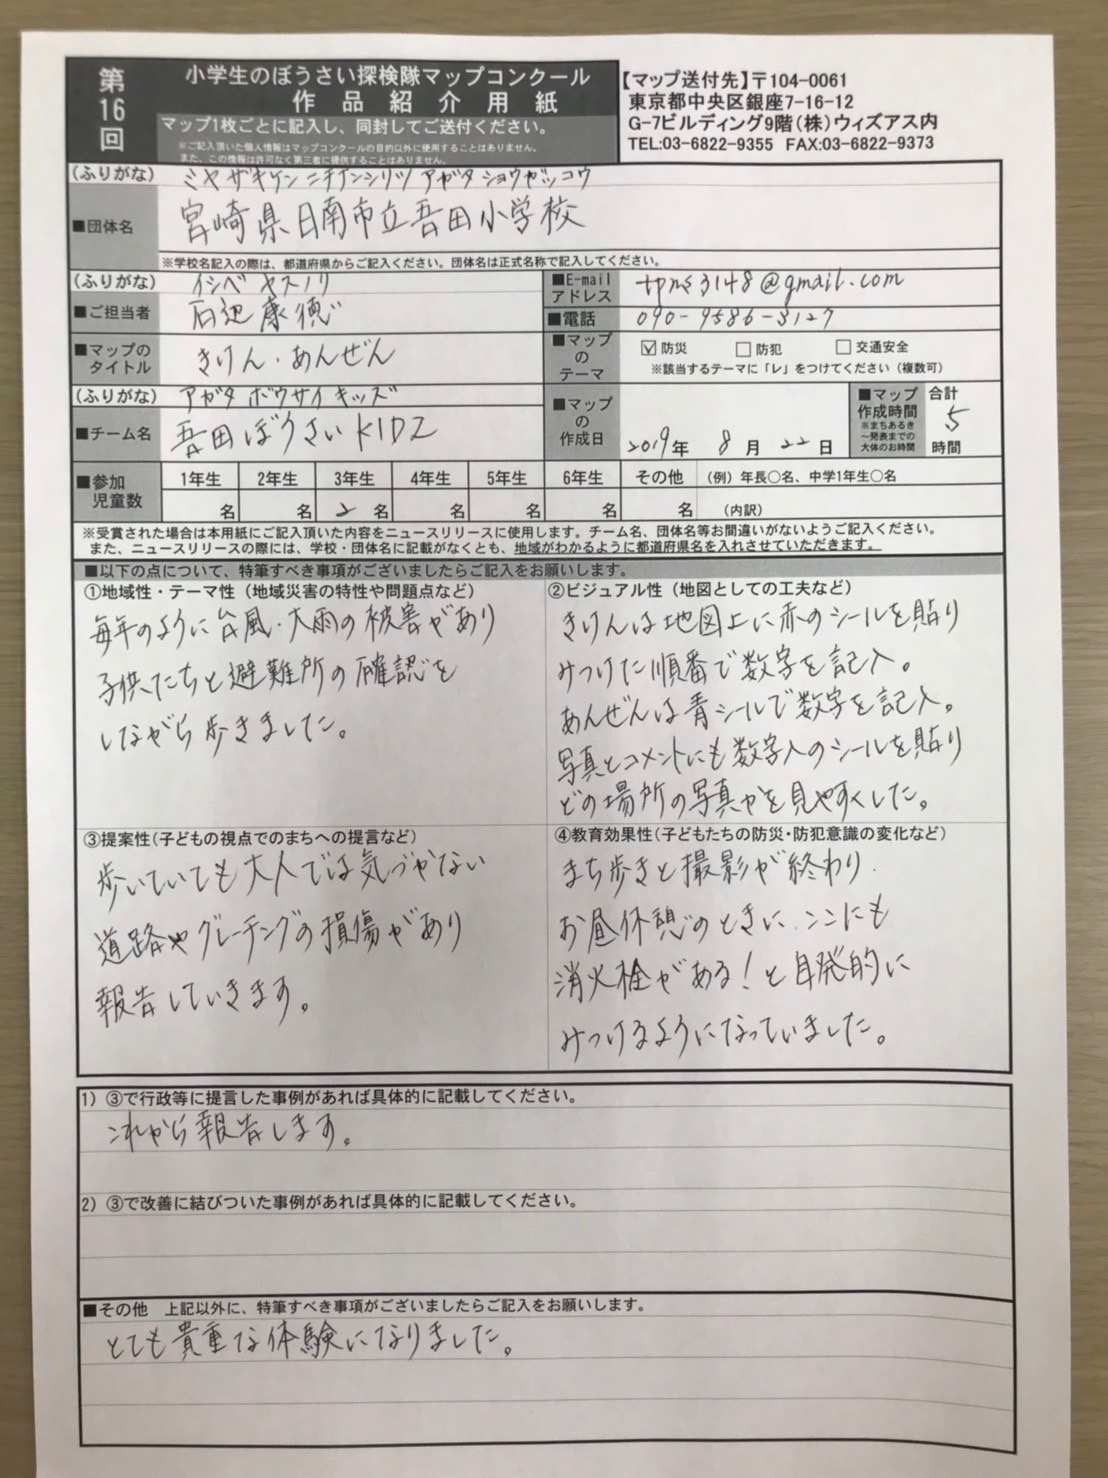 第16回
小学生のぼうさい探検隊マップコンクール
作品紹介用紙
マップ1枚ごとに記入し、同封してご送付ください。
※ご記入頂いた個人情報はマップコンクールの目的以外に使用することはありません。
また、この情報は許可なく第三者に提供することはありません。
【マップ送付先】〒104-0061
東京都中央区銀座7-16-12
G-7ビルディング9階(株)ウィズアス内
TEL:03-6822-9355 FAX:03-6822-9373
(ふりがな) ミヤザキケンニチナンシリツアガタショウガッコウ
■団体名 宮崎県日南市立吾田小学校
※学校名記入の際は、都道府県からご記入ください。団体名は正式名称で記入してください。
(ふりがな) イシベヤスノリ
■ご担当者 石辺康徳
■E-mailアドレス tpms3148@gmail.com
■電話 090-9586-3127
■マップのタイトル きけん・あんぜん
■マップのテーマ ☑防災 □防犯 □交通安全
※該当するテーマに「レ」をつけてください(複数可)
(ふりがな) アガタボウサイキッズ
■チーム名 吾田ぼうさいKIDZ
■マップの作成日 2019年 8月 22日
■マップ作成時間 合計 5 時間
※まちあるき~発表までの大体のお時間
■参加児童数 1年生 2年生 3年生 4年生 5年生 6年生 その他 (例)年長○名、中学1年生○名
名 名 2名 名 名 名 名 (内訳)
※受賞された場合は本用紙にご記入頂いた内容をニュースリリースに使用します。チーム名、団体名等お間違いがないようご記入ください。
また、ニュースリリースの際には、学校・団体名に記載がなくとも、地域がわかるように都道府県名を入れさせていただきます。
■以下の点について、特筆すべき事項がございましたらご記入をお願いします。
①地域性・テーマ性(地域災害の特性や問題点など)
毎年のように台風・大雨の被害があり
子供たちと避難所の確認を
しながら歩きました。
②ビジュアル性(地図としての工夫など)
きけんは地図上に赤のシールを貼り
みつけた順番で数字を記入。
あんぜんは青シールで数字を記入。
写真とコメントにも数字入のシールを貼り
どの場所の写真かを見やすくした。
③提案性(子どもの視点でのまちへの提言など)
歩いていても大人では気づかない
道路やグレーチングの損傷があり
報告していきます。
④教育効果性(子どもたちの防災・防犯意識の変化など)
まち歩きと撮影が終わり
お昼休憩のときに、ここにも
消火栓がある!と自発的に
みつけるようになっていました。
1) ③で行政等に提言した事例があれば具体的に記載してください。
これから報告します。
2) ③で改善に結びついた事例があれば具体的に記載してください。
■その他 上記以外に、特筆すべき事項がございましたらご記入をお願いします。
とても貴重な体験になりました。